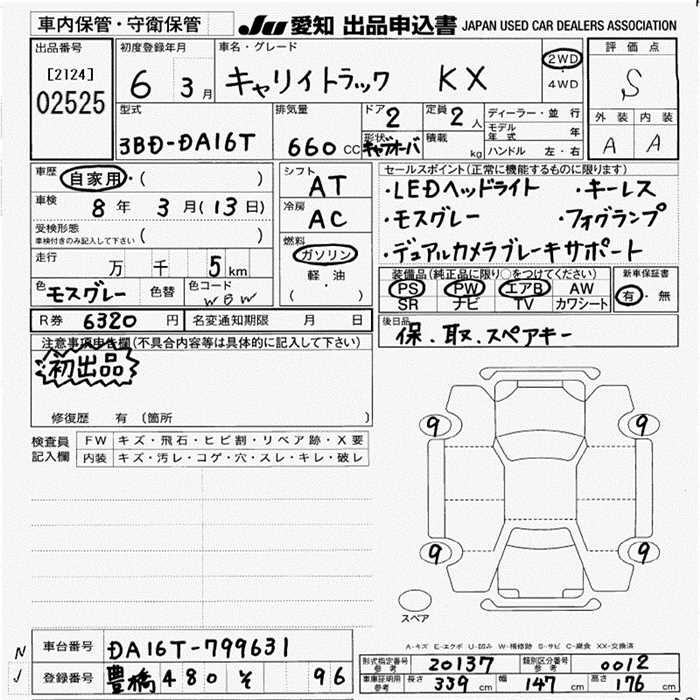 車内保管・守衛保管
JU 愛知 出品申込書 JAPAN USED CAR DEALERS ASSOCIATION
出品番号
[2124]
02525
初度登録年月
6 3月
車名・グレード
キャリイトラック KX
2WD
・
4WD
評価点
S
外装 内装
A A
型式
3BD-DA16T
排気量
660 CC
ドア
2
形状
キャブオーバ
定員
2 人
積載
kg
ディーラー・並行
モデル年式 年
ハンドル 左・右
車歴
自家用・( )
車検
8年 3月(13日)
受検形態
車検付きのみ記入して下さい ( )
走行
万 千 5 km
色
モスグレー
色替
色コード
シフト
AT
冷房
AC
燃料
ガソリン
軽・油
( )
セールスポイント(正常に機能するものに限ります)
・LEDヘッドライト ・キーレス
・モスグレー ・フォグランプ
・デュアルカメラブレーキサポート
装備品(純正品に限り○をつけてください)
PS PW エアB AW
SR ナビ TV カワシート
新車保証書
有・無
R券 6320 円 名変通知期限 月 日
後日品
保、取、スペアキー
注意事項申告欄(不具合内容等は具体的に記入して下さい)
初出品
修復歴 有 (箇所 )
検査員記入欄
FW キズ・飛石・ヒビ割・リペア跡・X要
内装 キズ・汚レ・コゲ・穴・スレ・キレ・破レ
9 9
9 9
スペア
A-キズ E-エクボ U-凹み W-補修跡 S-サビ C-腐食 XX-交換済
N
J
車台番号 DA16T-799631
登録番号 豊橋 480 そ 96
形式指定番号
参考
20137
類別区分番号
参考
0012
車庫証明用
参考
長さ 339 cm 幅 147 cm 高さ 176 cm